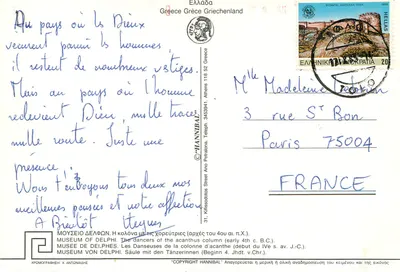 Ελλάδα
Greece Grèce Griechenland
Au pays où les Dieux
vivaient parmi les hommes,
il restent de nombreux vestiges.
Mais au pays où l'homme
redevient Dieu, mille traces,
mille route. Juste une
présence.
Nous t'envoyons tous deux nos
meilleures pensées et notre affection
A Bientôt
ΕΛΛΗΝΙΚΗ ΔΗΜΟΚΡΑΤΙΑ
20
Mlle Madeleine
3 rue St Bon.
Paris 75004
FRANCE
©"HANNIBAL"
ΜΟΥΣΕΙΟ ΔΕΛΦΩΝ. Η κολόνα με τις χορεύτριες (αρχές του 4ου αι. π.Χ.).
MUSEUM OF DELPHI. The dancers of the acanthus column (early 4th c. B.C.).
MUSEE DE DELPHES. Les Danseuses de la colonne d'acanthe (début du IVe s. av. J.-C.).
MUSEUM VON DELPHI. Säule mit den Tänzerinnen (Beginn 4. Jhdt v. Chr.)
COPYRIGHT HANNIBAL